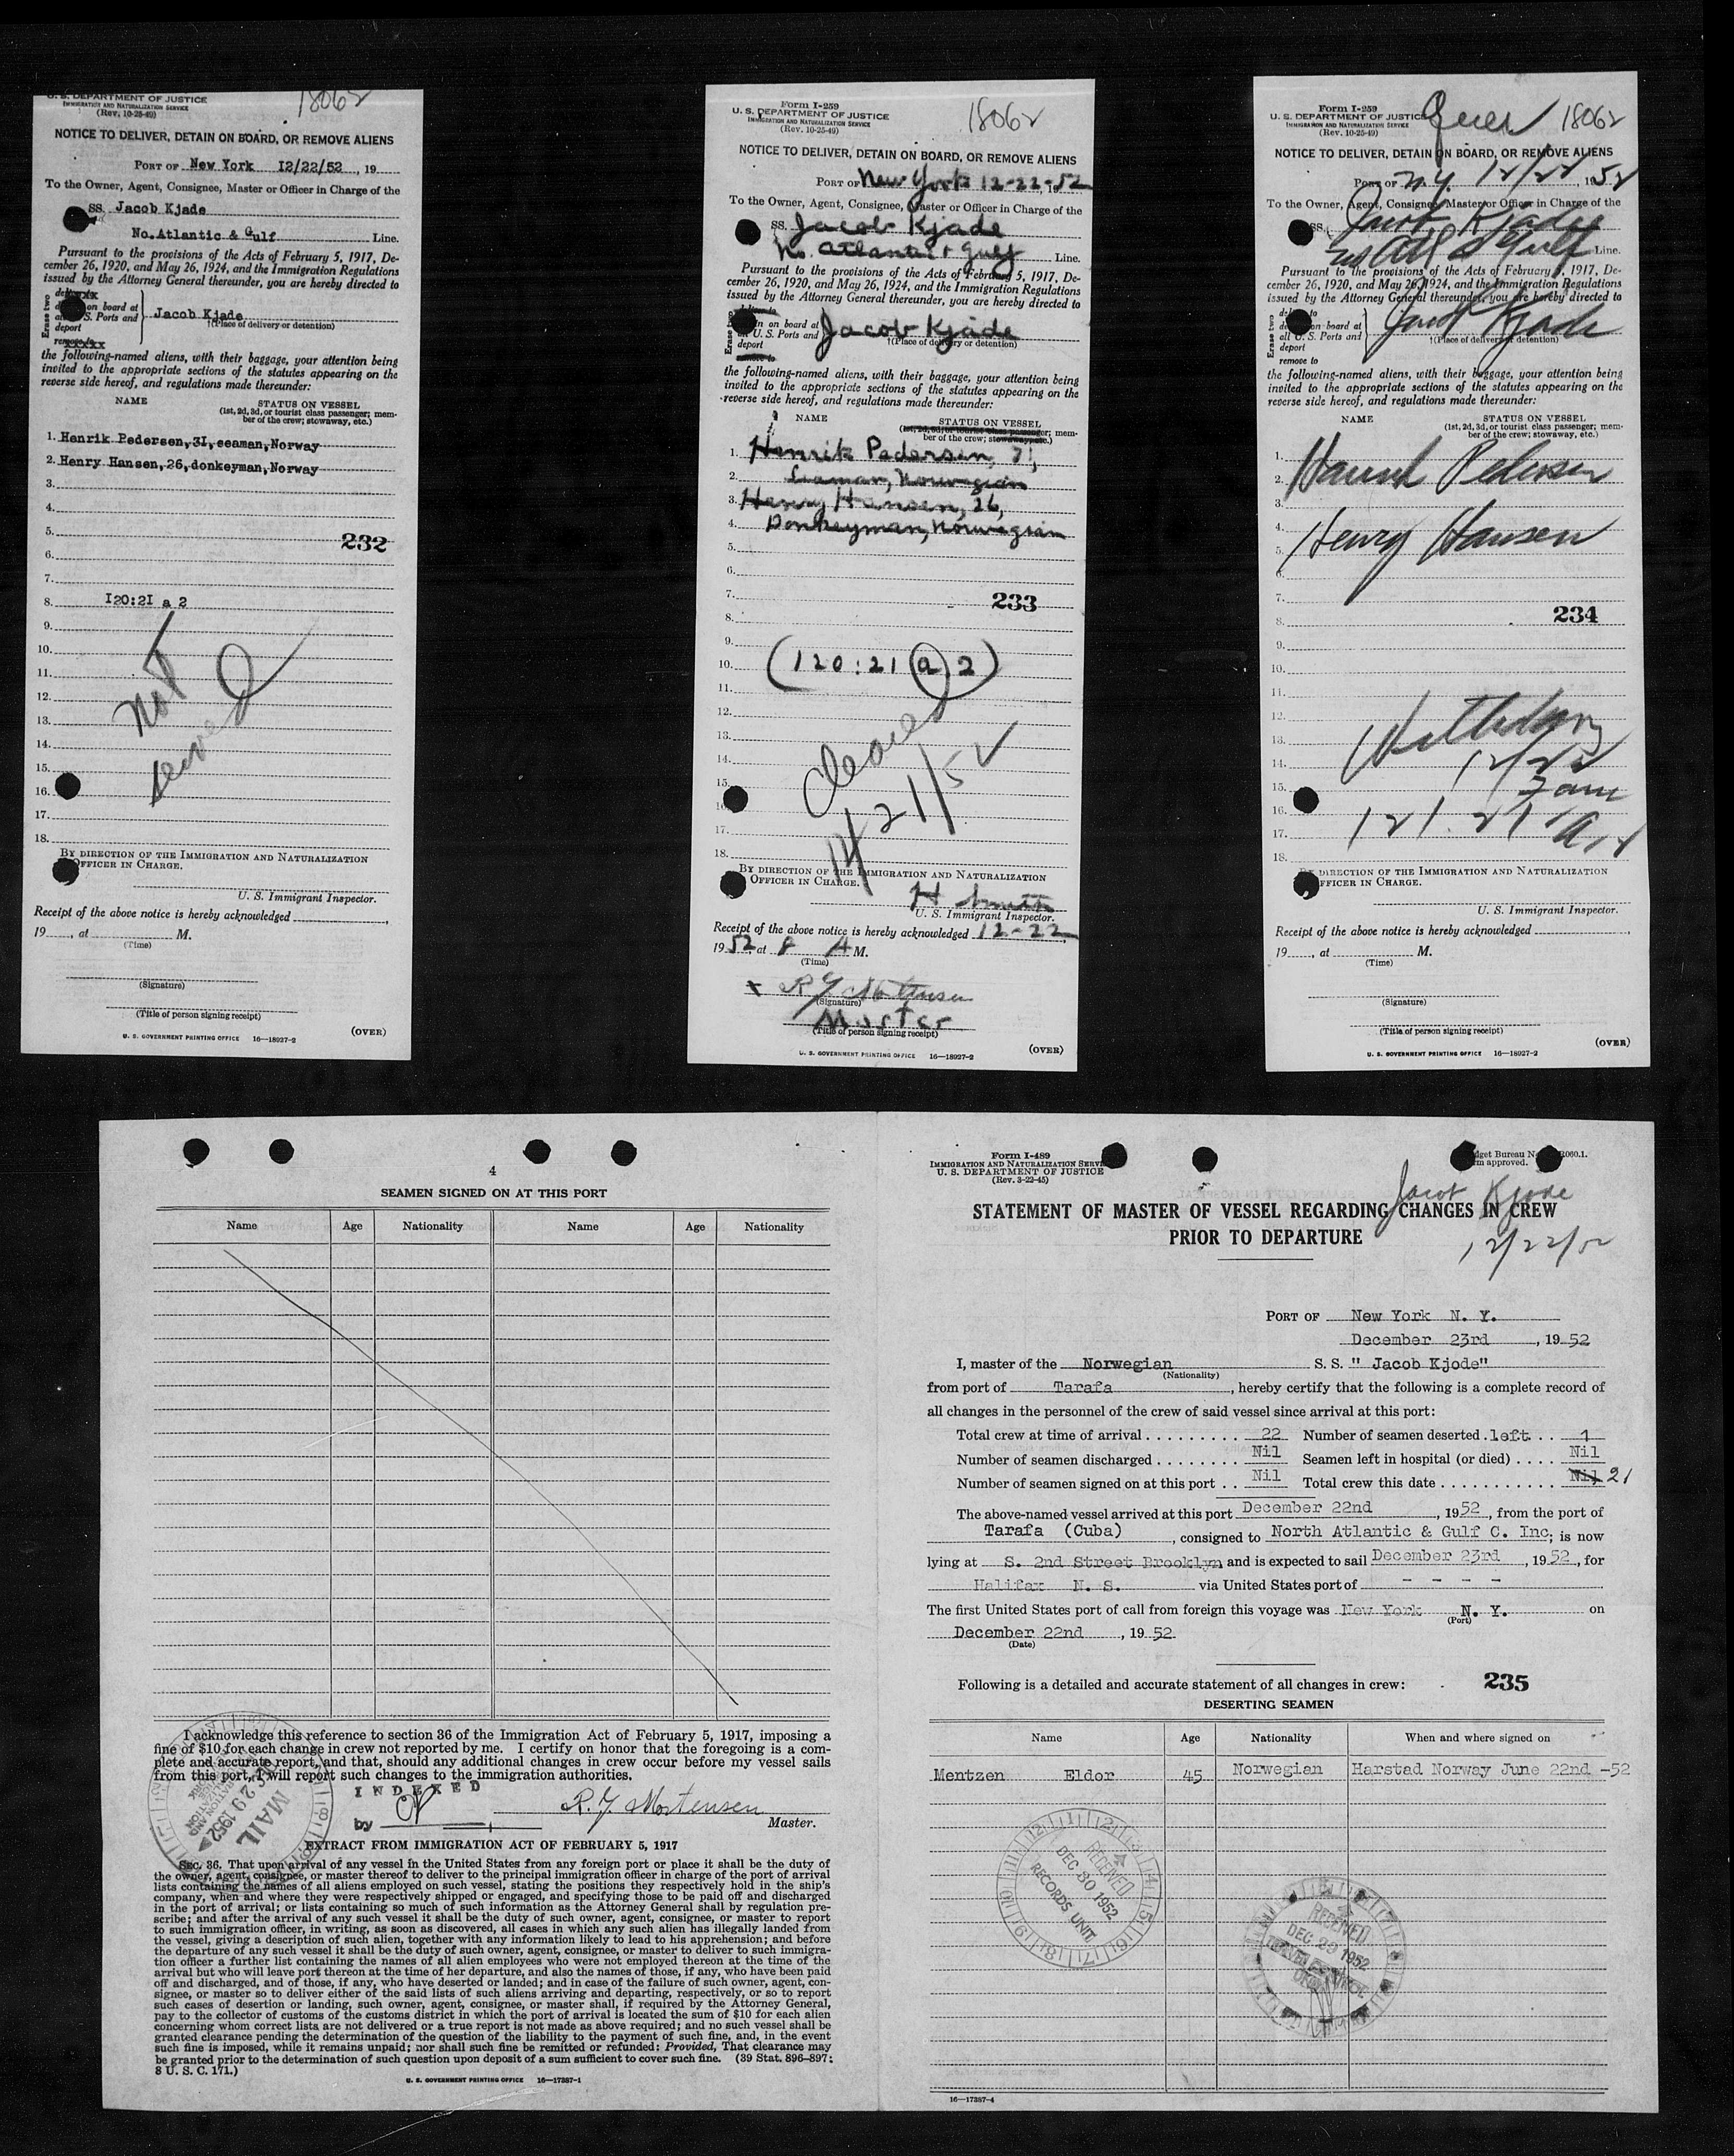 U. S. DEPARTMENT OF JUSTICE
IMMIGRATION AND NATURALIZATION SERVICE
(Rev. 10-25-49)
18062
NOTICE TO DELIVER, DETAIN ON BOARD, OR REMOVE ALIENS
PORT OF New York I2/22/52, 19
To the Owner, Agent, Consignee, Master or Officer in Charge of the
SS. Jacob Kjade
No.Atlantic & Gulf Line.
Pursuant to the provisions of the Acts of February 5, 1917, De-
cember 26, 1920, and May 26, 1924, and the Immigration Regulations
issued by the Attorney General thereunder, you are hereby directed to
Erase two
on board at
S. Ports and
deport
remove to
Jacob Kjade
†(Place of delivery or detention)
the following-named aliens, with their baggage, your attention being
invited to the appropriate sections of the statutes appearing on the
reverse side hereof, and regulations made thereunder:
NAME STATUS ON VESSEL
(1st, 2d, 3d, or tourist class passenger; mem-
ber of the crew; stowaway, etc.)
1. Henrik Pedersen,3I,seaman,Norway
2. Henry Hansen,26,donkeyman,Norway
3.
4.
5. 232
6.
7.
8. I20:2I a 2
9.
10.
11.
12.
13.
14.
15.
16.
17.
18.
not
served
BY DIRECTION OF THE IMMIGRATION AND NATURALIZATION
OFFICER IN CHARGE.
U. S. Immigrant Inspector.
Receipt of the above notice is hereby acknowledged
19, at M.
(Time)
(Signature)
(Title of person signing receipt)
(OVER)
U. S. GOVERNMENT PRINTING OFFICE 16—18927-2
Form I-259
U. S. DEPARTMENT OF JUSTICE
IMMIGRATION AND NATURALIZATION SERVICE
(Rev. 10-25-49)
18062
NOTICE TO DELIVER, DETAIN ON BOARD, OR REMOVE ALIENS
PORT OF New York 12-22-52
To the Owner, Agent, Consignee, Master or Officer in Charge of the
SS. Jacob Kjade
No. Atlantic + Gulf Line.
Pursuant to the provisions of the Acts of February 5, 1917, De-
cember 26, 1920, and May 26, 1924, and the Immigration Regulations
issued by the Attorney General thereunder, you are hereby directed to
Erase two
in on board at
U. S. Ports and
deport
remove to
Jacob Kjade
†(Place of delivery or detention)
the following-named aliens, with their baggage, your attention being
invited to the appropriate sections of the statutes appearing on the
reverse side hereof, and regulations made thereunder:
NAME STATUS ON VESSEL
(1st, 2d, 3d, or tourist class passenger; mem-
ber of the crew; stowaway, etc.)
1. Henrik Pedersen, 31,
2. Seaman, Norwegian
3. Henry Hansen, 26,
4. Donkeyman, Norwegian
5.
6.
7. 233
8.
9.
10. (120:21 (a) 2)
11.
12.
13.
14.
15.
16.
17.
18.
12/21/52
BY DIRECTION OF THE IMMIGRATION AND NATURALIZATION
OFFICER IN CHARGE.
H Smith
U. S. Immigrant Inspector.
Receipt of the above notice is hereby acknowledged 12-22
1952 at 8 A M.
(Time)
x R J Mortensen
(Signature)
Master
(Title of person signing receipt)
(OVER)
U. S. GOVERNMENT PRINTING OFFICE 16—18927-2
Form I-259
U. S. DEPARTMENT OF JUSTICE
IMMIGRATION AND NATURALIZATION SERVICE
(Rev. 10-25-49)
18062
NOTICE TO DELIVER, DETAIN ON BOARD, OR REMOVE ALIENS
PORT OF N.Y. 12/22, 1952
To the Owner, Agent, Consignee, Master or Officer in Charge of the
SS. Jacob Kjade
no Atl & Gulf Line.
Pursuant to the provisions of the Acts of February 5, 1917, De-
cember 26, 1920, and May 26, 1924, and the Immigration Regulations
issued by the Attorney General thereunder, you are hereby directed to
on board at
all U. S. Ports and
deport
remove to
Jacob Kjade
†(Place of delivery or detention)
the following-named aliens, with their baggage, your attention being
invited to the appropriate sections of the statutes appearing on the
reverse side hereof, and regulations made thereunder:
NAME STATUS ON VESSEL
(1st, 2d, 3d, or tourist class passenger; mem-
ber of the crew; stowaway, etc.)
1.
2. Henrik Pedersen
3.
4.
5. Henry Hansen
6.
7.
8. 234
9.
10.
11.
12.
13.
14. 12/22
15. 7 am
16.
17.
18.
BY DIRECTION OF THE IMMIGRATION AND NATURALIZATION
OFFICER IN CHARGE.
U. S. Immigrant Inspector.
Receipt of the above notice is hereby acknowledged
19, at M.
(Time)
(Signature)
(Title of person signing receipt)
(OVER)
U. S. GOVERNMENT PRINTING OFFICE 16—18927-2
4
SEAMEN SIGNED ON AT THIS PORT
Name Age Nationality Name Age Nationality
I acknowledge this reference to section 36 of the Immigration Act of February 5, 1917, imposing a
fine of $10 for each change in crew not reported by me. I certify on honor that the foregoing is a com-
plete and accurate report, and that, should any additional changes in crew occur before my vessel sails
from this port, I will report such changes to the immigration authorities.
INDEXED
by
R. J. Mortensen
Master.
MAIL
DEC 29 1952
EXTRACT FROM IMMIGRATION ACT OF FEBRUARY 5, 1917
SEC. 36. That upon arrival of any vessel in the United States from any foreign port or place it shall be the duty of
the owner, agent, consignee, or master thereof to deliver to the principal immigration officer in charge of the port of arrival
lists containing the names of all aliens employed on such vessel, stating the positions they respectively hold in the ship's
company, when and where they were respectively shipped or engaged, and specifying those to be paid off and discharged
in the port of arrival; or lists containing so much of such information as the Attorney General shall by regulation pre-
scribe; and after the arrival of any such vessel it shall be the duty of such owner, agent, consignee, or master to report
to such immigration officer, in writing, as soon as discovered, all cases in which any such alien has illegally landed from
the vessel, giving a description of such alien, together with any information likely to lead to his apprehension; and before
the departure of any such vessel it shall be the duty of such owner, agent, consignee, or master to deliver to such immigra-
tion officer a further list containing the names of all alien employees who were not employed thereon at the time of the
arrival but who will leave port thereon at the time of her departure, and also the names of those, if any, who have been paid
off and discharged, and of those, if any, who have deserted or landed; and in case of the failure of such owner, agent, con-
signee, or master so to deliver either of the said lists of such aliens arriving and departing, respectively, or so to report
such cases of desertion or landing, such owner, agent, consignee, or master shall, if required by the Attorney General,
pay to the collector of customs of the customs district in which the port of arrival is located the sum of $10 for each alien
concerning whom correct lists are not delivered or a true report is not made as above required; and no such vessel shall be
granted clearance pending the determination of the question of the liability to the payment of such fine, and, in the event
such fine is imposed, while it remains unpaid; nor shall such fine be remitted or refunded: Provided, That clearance may
be granted prior to the determination of such question upon deposit of a sum sufficient to cover such fine. (39 Stat. 896–897;
8 U. S. C. 171.)
U. S. GOVERNMENT PRINTING OFFICE 16—17387-1
Form I-489
IMMIGRATION AND NATURALIZATION SERVICE
U. S. DEPARTMENT OF JUSTICE
(Rev. 3-22-45)
dget Bureau N R060.1.
m approved.
Jacob Kjode
12/22/52
STATEMENT OF MASTER OF VESSEL REGARDING CHANGES IN CREW
PRIOR TO DEPARTURE
PORT OF New York N. Y.
December 23rd, 1952
I, master of the Norwegian S. S. " Jacob Kjode"
(Nationality)
from port of Tarafa, hereby certify that the following is a complete record of
all changes in the personnel of the crew of said vessel since arrival at this port:
Total crew at time of arrival 22 Number of seamen deserted left 1
Number of seamen discharged Nil Seamen left in hospital (or died) Nil
Number of seamen signed on at this port Nil Total crew this date Nil 21
The above-named vessel arrived at this port December 22nd, 1952, from the port of
Tarafa (Cuba), consigned to North Atlantic & Gulf C. Inc; is now
lying at S. 2nd Street Brooklyn and is expected to sail December 23rd, 1952, for
Halifax N. S. via United States port of - - - -
The first United States port of call from foreign this voyage was New York N. Y. on
(Port)
December 22nd, 1952
(Date)
Following is a detailed and accurate statement of all changes in crew: 235
DESERTING SEAMEN
Name Age Nationality When and where signed on
Mentzen Eldor 45 Norwegian Harstad Norway June 22nd -52
RECEIVED
DEC 30 1952
RECORDS UNIT
RECEIVED
DEC 29 1952
16—17387-4